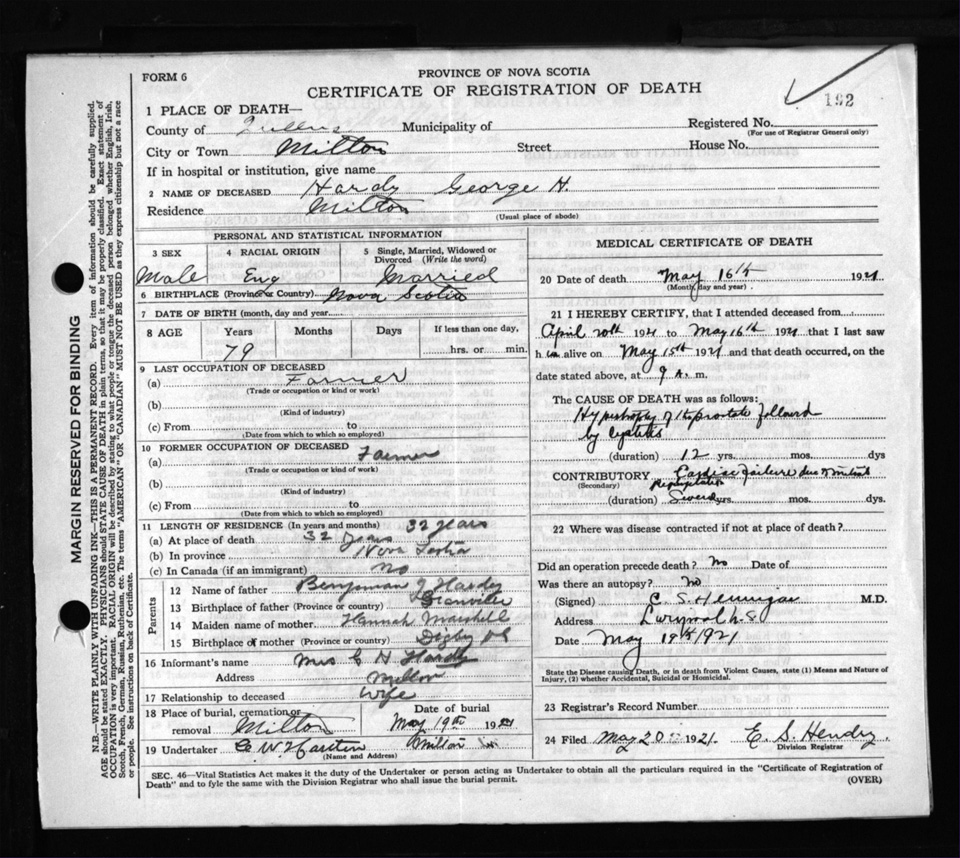 FORM 6
PROVINCE OF NOVA SCOTIA
CERTIFICATE OF REGISTRATION OF DEATH
192
1 PLACE OF DEATH—
County of Queens Municipality of Registered No.
(For use of Registrar General only)
City or Town Milton Street House No.
If in hospital or institution, give name
2 NAME OF DECEASED Hardy George H.
Residence Milton
(Usual place of abode)
PERSONAL AND STATISTICAL INFORMATION
3 SEX 4 RACIAL ORIGIN 5 Single, Married, Widowed or Divorced (Write the word)
Male Eng Married
6 BIRTHPLACE (Province or Country) Nova Scotia
7 DATE OF BIRTH (month, day and year)
8 AGE Years Months Days If less than one day,
79 hrs. or min.
9 LAST OCCUPATION OF DECEASED
(a) Farmer
(Trade or occupation or kind or work)
(b)
(Kind of industry)
(c) From to
(Date from which to which so employed)
10 FORMER OCCUPATION OF DECEASED
(a) Farmer
(Trade or occupation or kind of work)
(b)
(Kind of industry)
(c) From to
(Date from which to which so employed)
11 LENGTH OF RESIDENCE (In years and months) 32 years
(a) At place of death 32 years
(b) In province Nova Scotia
(c) In Canada (if an immigrant) no
Parents
12 Name of father Benjaman J Hardy
13 Birthplace of father (Province or country)
14 Maiden name of mother Hannah Marshall
15 Birthplace of mother (Province or country) Digby
16 Informant's name Mrs G H Hardy
Address Milton
17 Relationship to deceased Wife
18 Place of burial, cremation or removal Milton Date of burial May 19th 1921
19 Undertaker Milton
(Name and Address)
MEDICAL CERTIFICATE OF DEATH
20 Date of death May 16th 1921
(Month, day and year)
21 I HEREBY CERTIFY, that I attended deceased from
April 20th 1921 to May 16th 1921 that I last saw
h im alive on May 15th 1921 and that death occurred, on the
date stated above, at 9 A. m.
The CAUSE OF DEATH was as follows:
Hypertrophy of the prostate followed
by Cystitis
(duration) 12 yrs. mos. dys
CONTRIBUTORY Cardiac failure due to mitral
(Secondary) Regurgitation
(duration) yrs. mos. dys.
22 Where was disease contracted if not at place of death?
Did an operation precede death? No Date of
Was there an autopsy? no
(Signed) M.D.
Address Liverpool N.S
Date May 18th 1921
State the Disease causing Death, or in death from Violent Causes, state (1) Means and Nature of
Injury, (2) whether Accidental, Suicidal or Homicidal.
23 Registrar's Record Number
24 Filed May 20 1921 E. S. Hendry
Division Registrar
SEC. 46—Vital Statistics Act makes it the duty of the Undertaker or person acting as Undertaker to obtain all the particulars required in the "Certificate of Registration of
Death" and to fyle the same with the Division Registrar who shall issue the burial permit. (OVER)
MARGIN RESERVED FOR BINDING
N.B.—WRITE PLAINLY WITH UNFADING INK—THIS IS A PERMANENT RECORD. Every item of information should be carefully supplied.
AGE should be stated EXACTLY. PHYSICIANS should STATE CAUSE OF DEATH in plain terms, so that it may be properly classified. Exact statement of
OCCUPATION is very important. RACIAL ORIGIN will be described by stating to what people or tongue the deceased person belonged whether English, Irish,
Scotch, French, German, Russian, Ruthenian, etc. The terms "AMERICAN" OR "CANADIAN" MUST NOT BE USED as they express citizenship but not a race
or people. See instructions on back of Certificate.